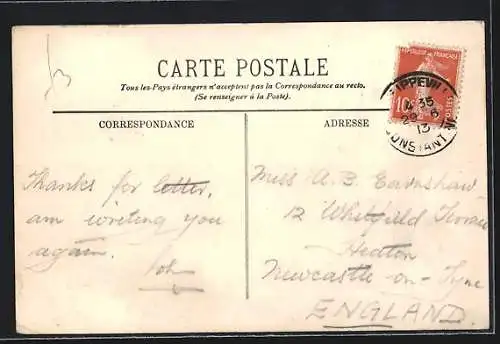 CARTE POSTALE
Tous les Pays étrangers n'acceptent pas la Correspondance au recto.
(Se renseigner à la Poste).
CORRESPONDANCE
ADRESSE
REPUBLIQUE FRANÇAISE
10
POSTES
PHILIPPEVILLE
4 35
29 8
13
CONSTANTINE
Thanks for letter,
am writing you
again.
Miss A. B. Earnshaw
12 Whitfield Terrace
Heaton
Newcastle-on-Tyne
ENGLAND.